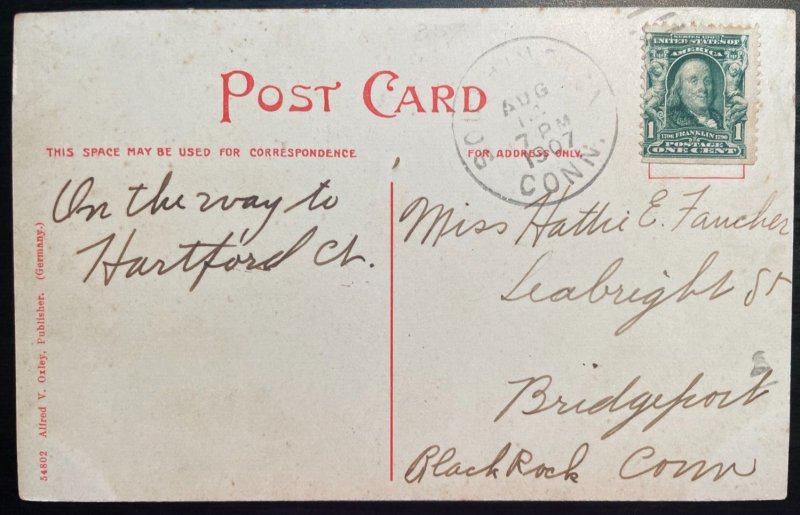 POST CARD
THIS SPACE MAY BE USED FOR CORRESPONDENCE
FOR ADDRESS ONLY.
AUG
7 PM
1907
CONN.
SERIES 1902
UNITED STATES OF
AMERICA
1706 FRANKLIN 1790
POSTAGE
1 ONE CENT 1
On the way to
Hartford Ct.
Miss Hattie E. Faucher
Seabright St
Bridgeport
Black Rock Conn
54802 Alfred V. Oxley, Publisher. (Germany.)